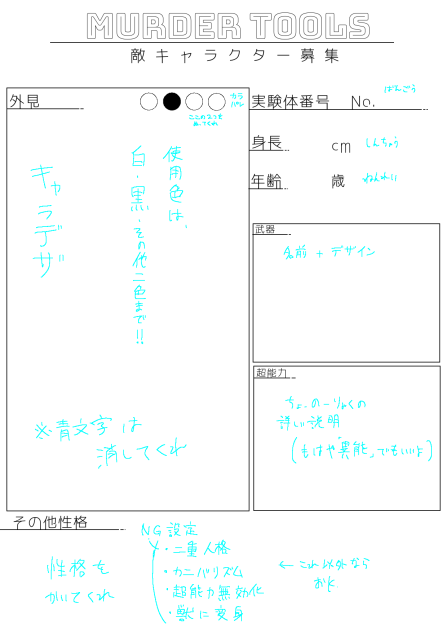 MURDER TOOLS
敵キャラクター募集
外見
カラ
実験体番号 No.
ばんごう
身長 cm しんちょう
年齢 歳 ねんれい
使用色は、
白・黒・その他二色まで!!
キャラデザ
※青文字は
消してくれ
武器
名前 + デザイン
超能力
ちょーのーりょくの
詳しい説明
(もはや"異能"でもいいよ)
その他性格
性格を
かいてくれ
NG設定
・二重人格
・カニバリズム
・超能力無効化
・獣に変身
← これ以外なら
おK